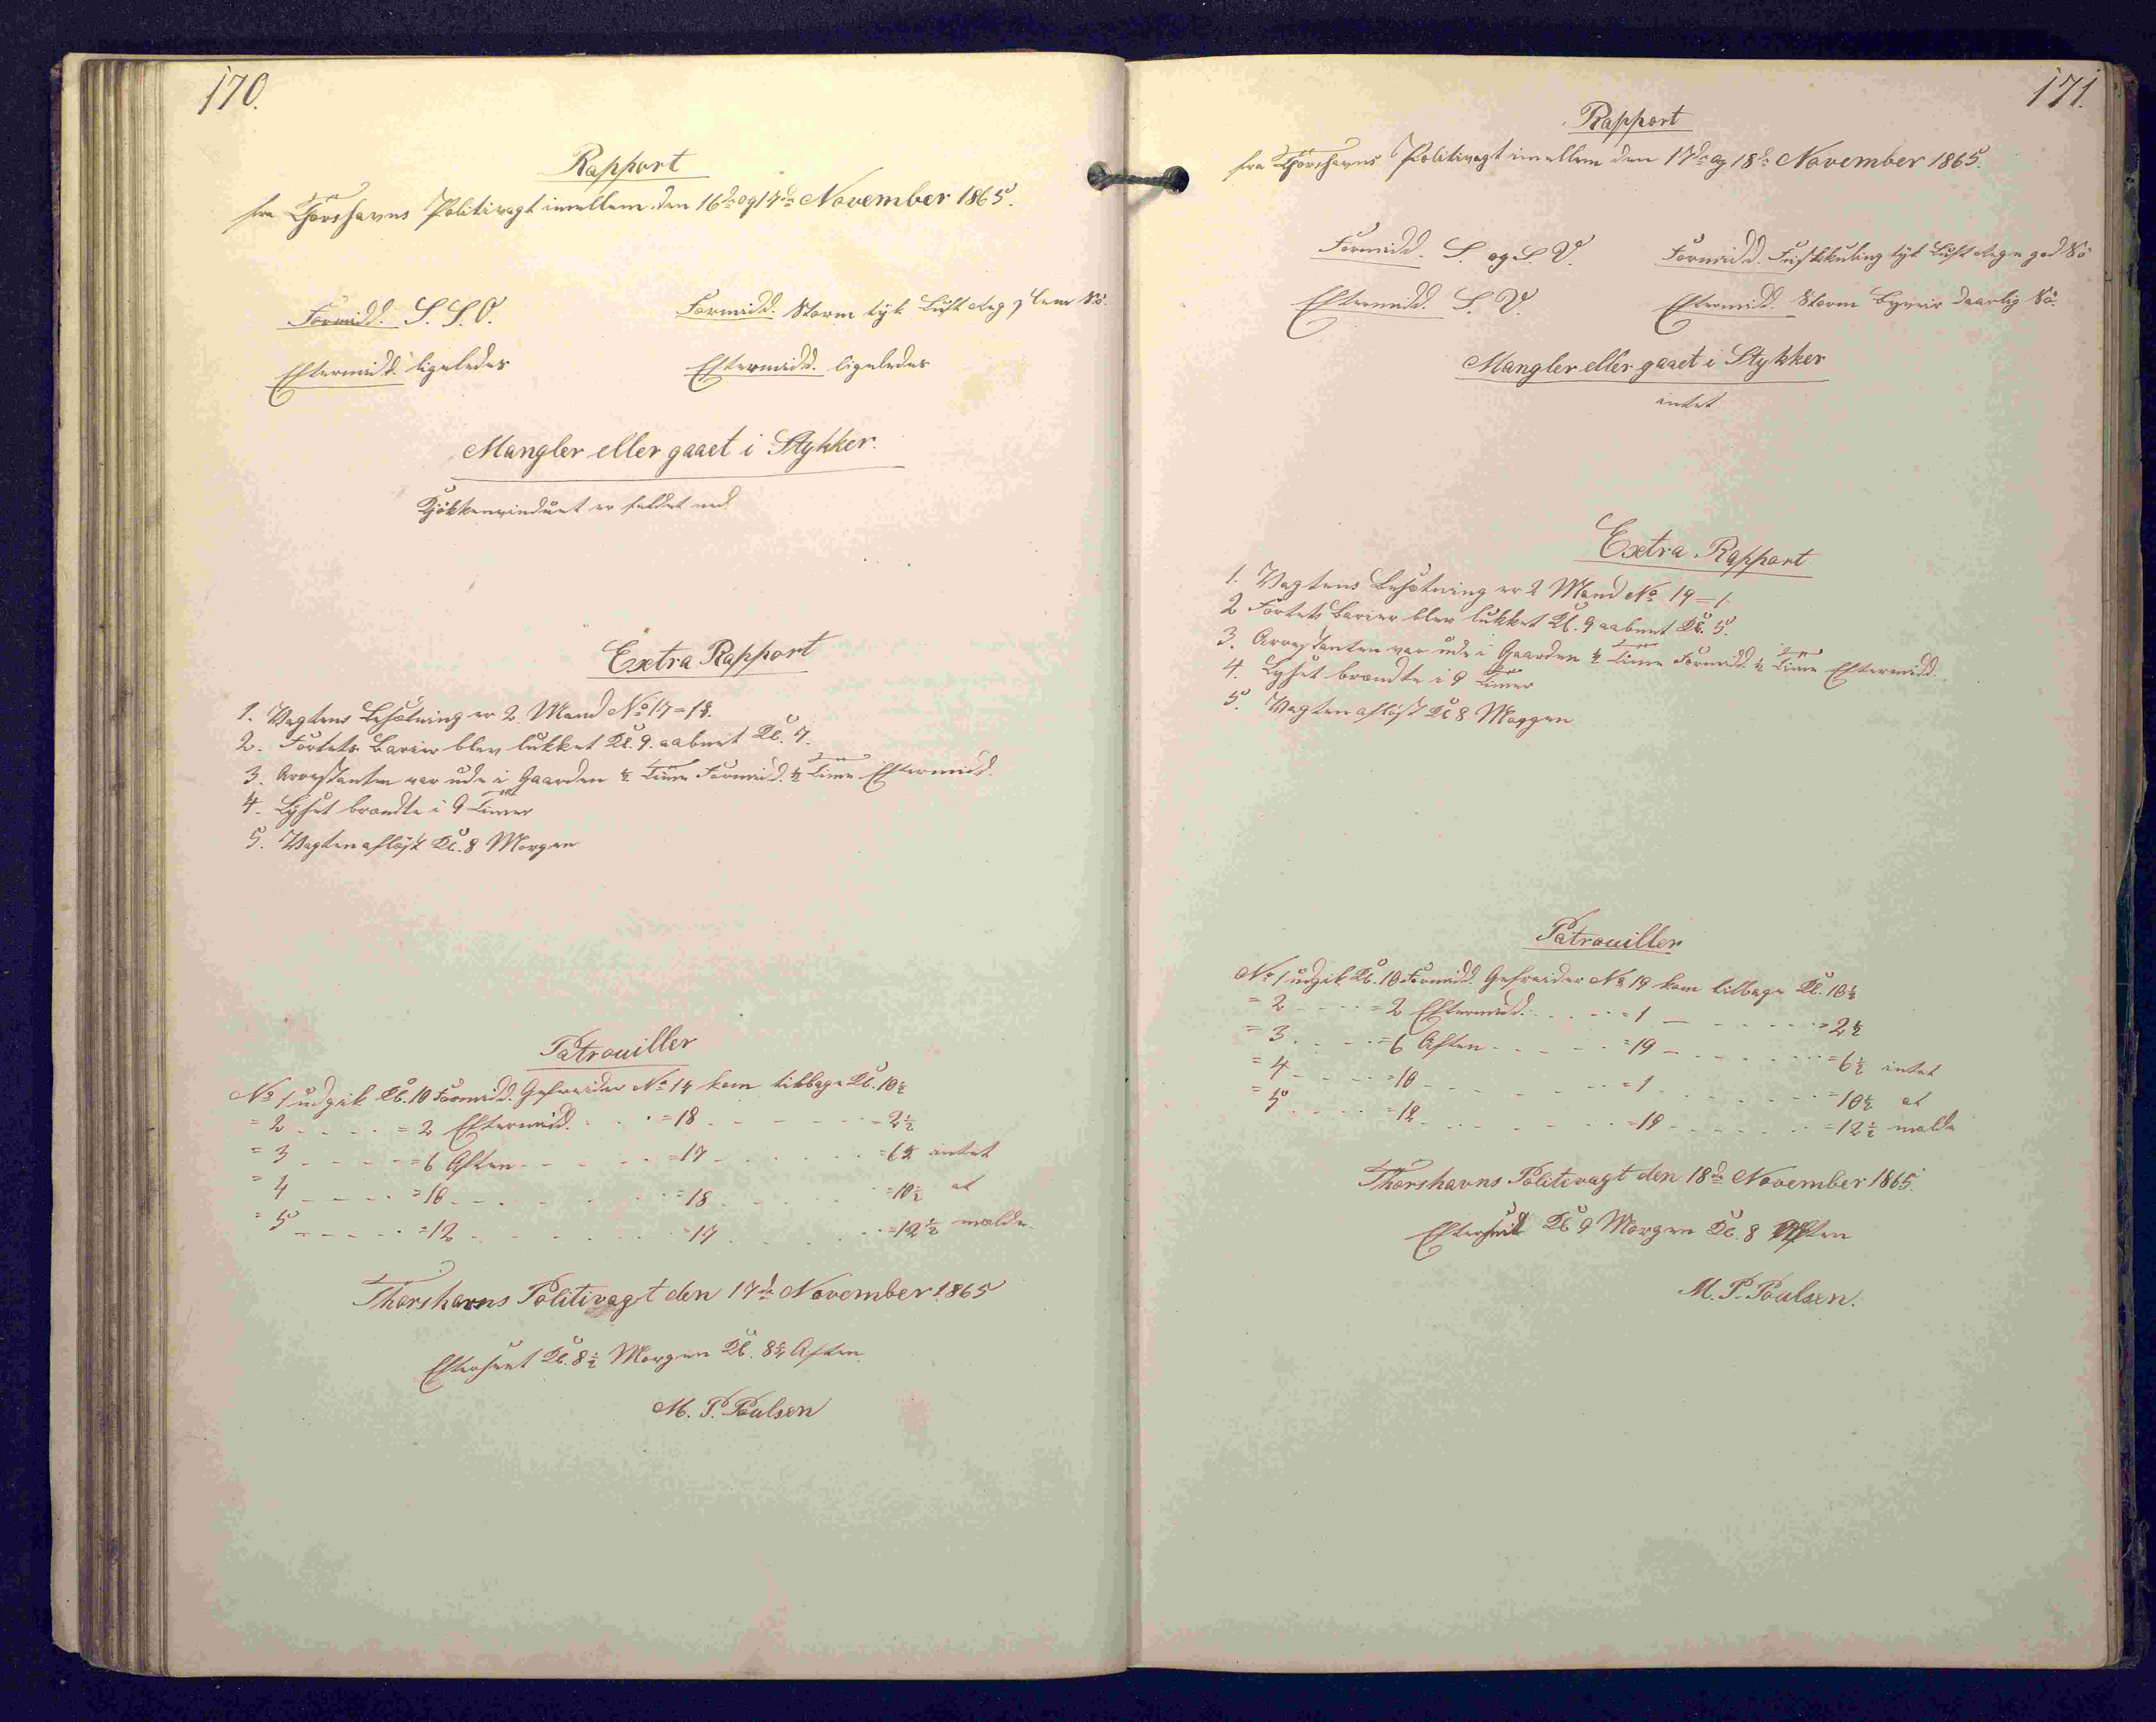 170.
Rapport
fra Thorshavns Politivagt imellem den 16de og 17de November 1865.
Formidd. S. S. O.
Formidd. Storm tyk Luft Reg slem Sö.
Eftermidd. ligeledes
Eftermidd. ligeledes
Mangler eller gaaet i Stykker.
Kjökkenvinduet er faldet ned
Extra Rapport
1. Vagtens Besætning er 2 Mand No 17 = 18.
2. Fortets Barier blev lukket Kl. 9. aabnet Kl. 7.
3. Arrestanten var ude i Gaarden ½ Time Formidd. ½ Time Eftermidd.
4. Lyset brændte i 9 Timer
5. Vagten aflöst Kl. 8 Morgen
Patrouiller
No 1 udgik Kl. 10 Formidd. Gefreider No 17 kom tilbage Kl. 10½
= 2 - - - - = 2 Eftermidd. - - = 18 - - - - - 2½
= 3 - - - - = 6 Aften - - - - = 17 - - - - = 6½ intet
= 4 - - - - = 10 - - - - - = 18 - - - - = 10½ at
= 5 - - - - = 12 - - - - - = 17 - - - - = 12½ melde.
Thorshavns Politivagt den 17de November 1865
Efterseet Kl. 8½ Morgen Kl. 8¾ Aften
M. P. Poulsen
171.
Rapport
fra Thorshavns Politivagt imellem den 17de og 18de November 1865.
Formidd. S. og S. V.
Formidd. Friskkuling tyk Luft Regn god Sö
Eftermidd. S. V.
Eftermidd. Storm Byveir daarlig Sö.
Mangler eller gaaet i Stykker
intet
Extra Rapport
1. Vagtens Besætning er 2 Mand No 19 = 1.
2 Fortets Barier blev lukket Kl. 9 aabnet Kl. 5.
3. Arrestanten var ude i Gaarden ½ Time Formidd. ½ Time Eftermidd.
4. Lyset brændte i 9 Timer
5. Vagten aflöst Kl 8 Morgen
Patrouiller
No 1 udgik Kl. 10 Formidd. Gefreider No 19 kom tilbage Kl. 10½
= 2 - - - - = 2 Eftermidd. - - - - = 1 - - - - - = 2½
= 3 - - - - = 6 Aften - - - - = 19 - - - - - = 6½ intet
= 4 - - - - = 10 - - - - - = 1 - - - - - = 10½ at
= 5 - - - - = 12 - - - - - = 19 - - - - - = 12½ melde
Thorshavns Politivagt den 18de November 1865.
Efterseet Kl 9 Morgen Kl. 8 Aften
M. P. Poulsen.